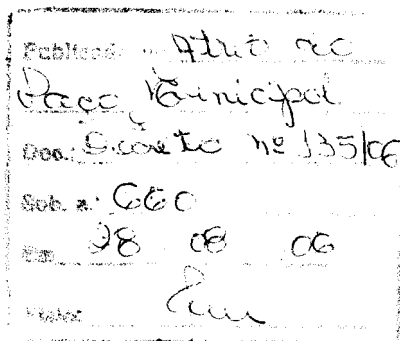 Publicado no Atrio do
Paço Municipal
Doc.: Decreto nº 135/06
Sob. n.º 660
Em 28 08 06